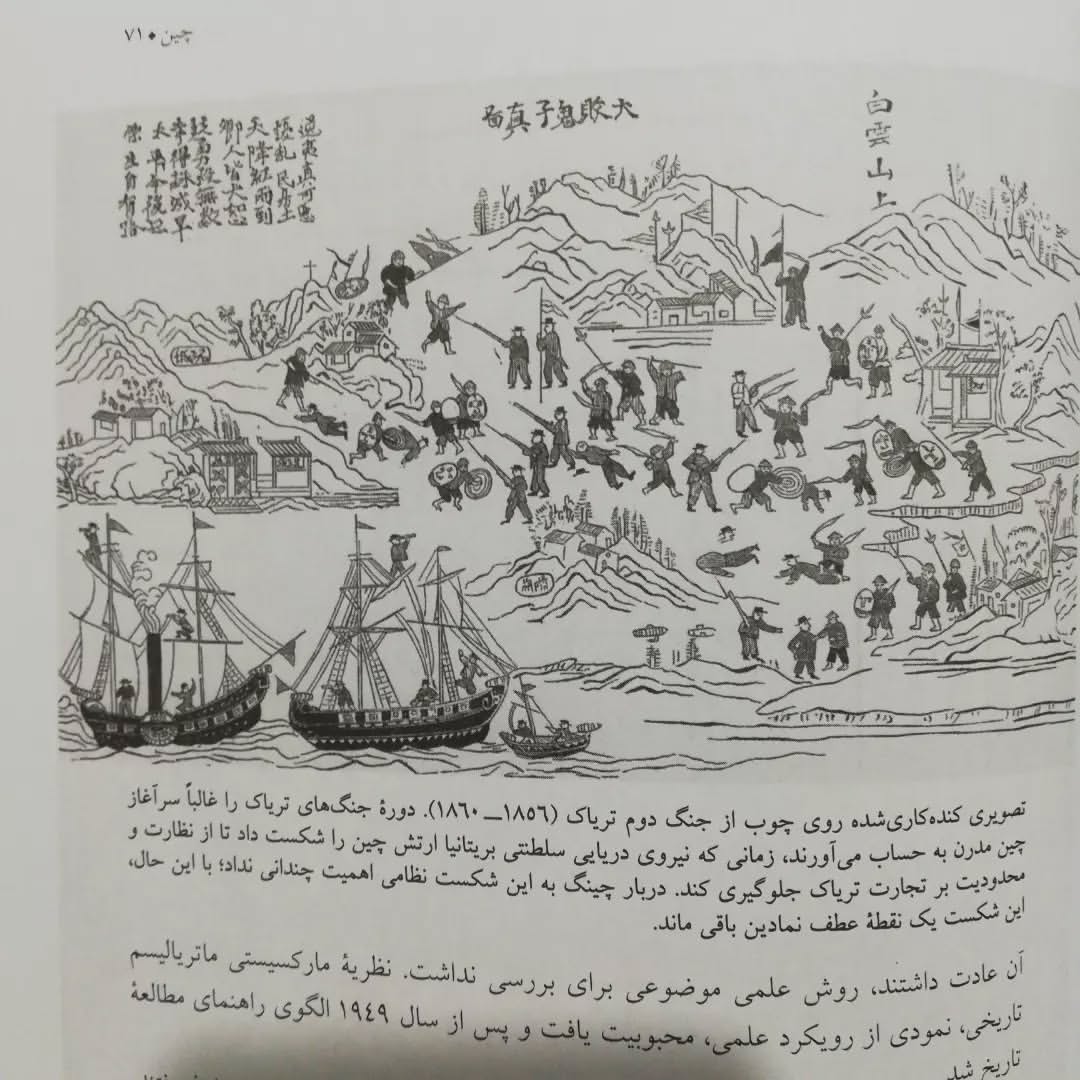 چین • ۷۱
大敗鬼子真圖
白雲山上
逆夷真可惡
擾乱民居土
天降紅雨到
鄉人皆大怒
競勇殺無數
幸得誅滅早
太平今後
自有路
تصویری کنده‌کاری‌شده روی چوب از جنگ دوم تریاک (۱۸۵۶ــ۱۸۶۰). دورهٔ جنگ‌های تریاک را غالباً سرآغاز
چین مدرن به حساب می‌آورند، زمانی که نیروی دریایی سلطنتی بریتانیا ارتش چین را شکست داد تا از نظارت و
محدودیت بر تجارت تریاک جلوگیری کند. دربار چینگ به این شکست نظامی اهمیت چندانی نداد؛ با این حال،
این شکست یک نقطهٔ عطف نمادین باقی ماند.
آن عادت داشتند، روش علمی موضوعی برای بررسی نداشت. نظریهٔ مارکسیستی ماتریالیسم
تاریخی، نمودی از رویکرد علمی، محبوبیت یافت و پس از سال ۱۹۴۹ الگوی راهنمای مطالعهٔ
تاریخ شد.